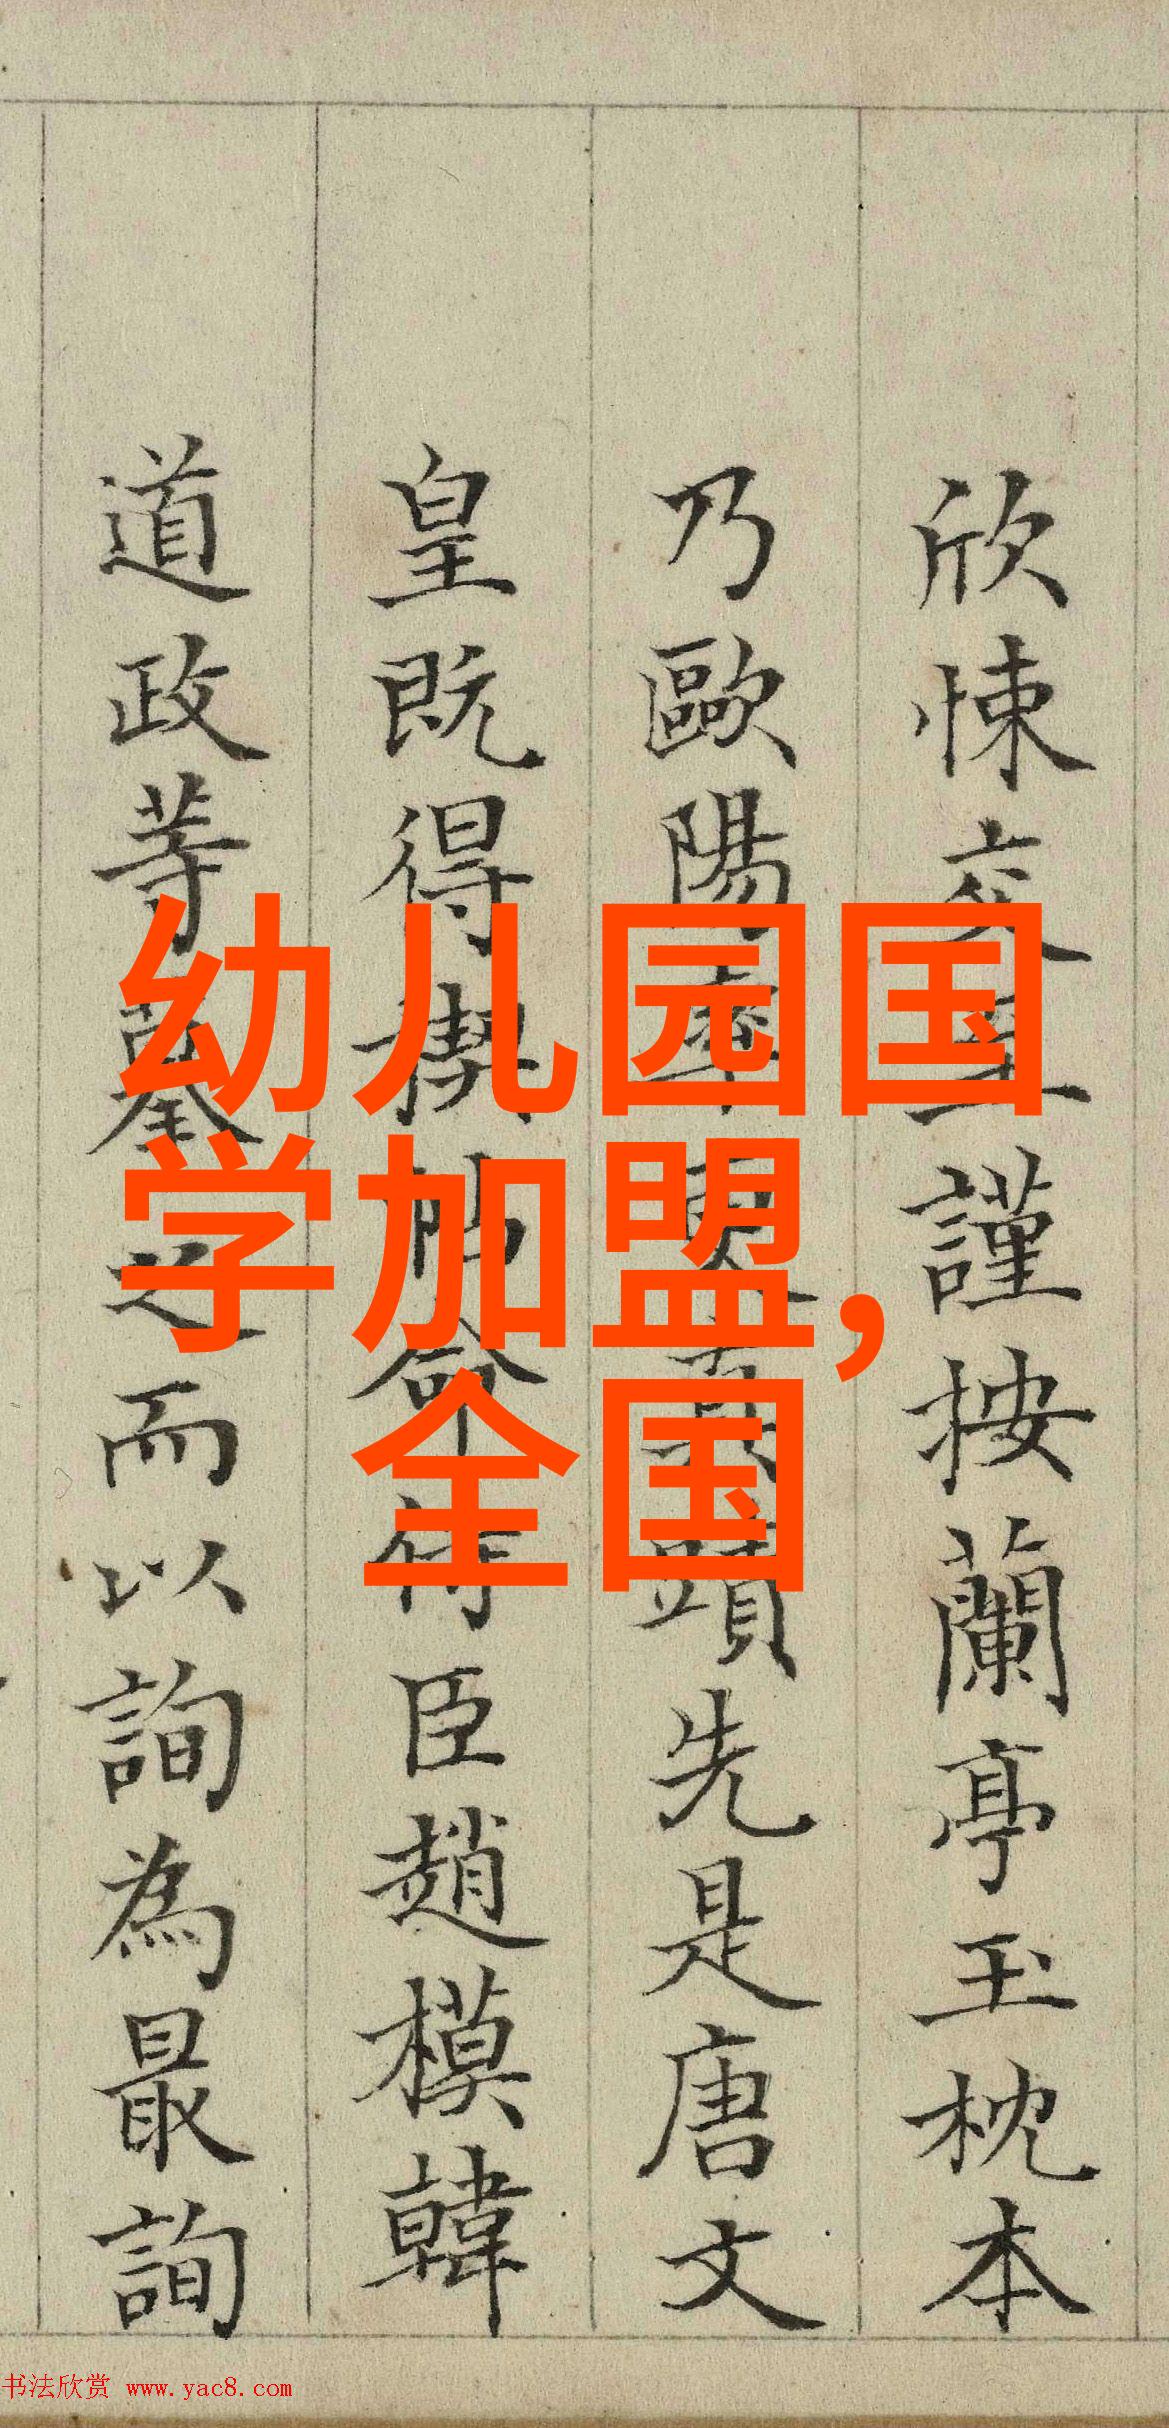 欣悚交至謹按蘭亭玉枕本
乃歐陽率更真蹟先是唐文
皇既得禊帖命侍臣趙模韓
道政等之而以詢為最詢
幼儿园国
学加盟,
全国
书法欣赏 www.yac8.com